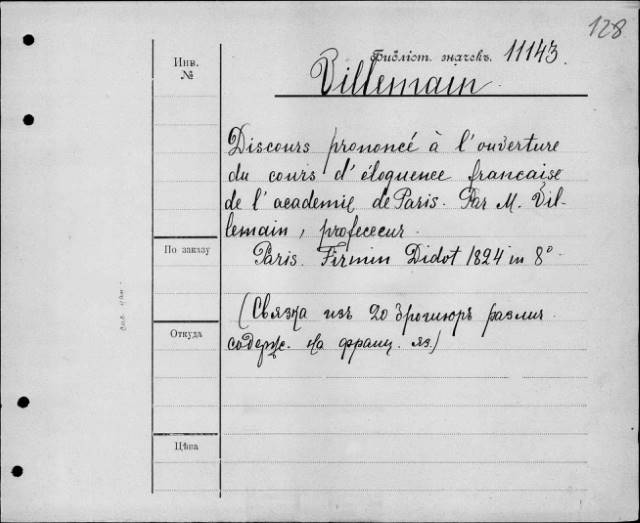 128
Инв.
№
Библіот. значекъ. 11143.
Villemain.
Discours prononcé à l'ouverture
du cours d'éloquence francaise
de l'academie de Paris. Par M. Vil-
lemain, profececur.
Paris. Firmin Didot 1824 in 8°
(Связка изъ 20 брошюръ различ.
содерж. на франц. яз.)
По заказу
Откуда
Цѣна